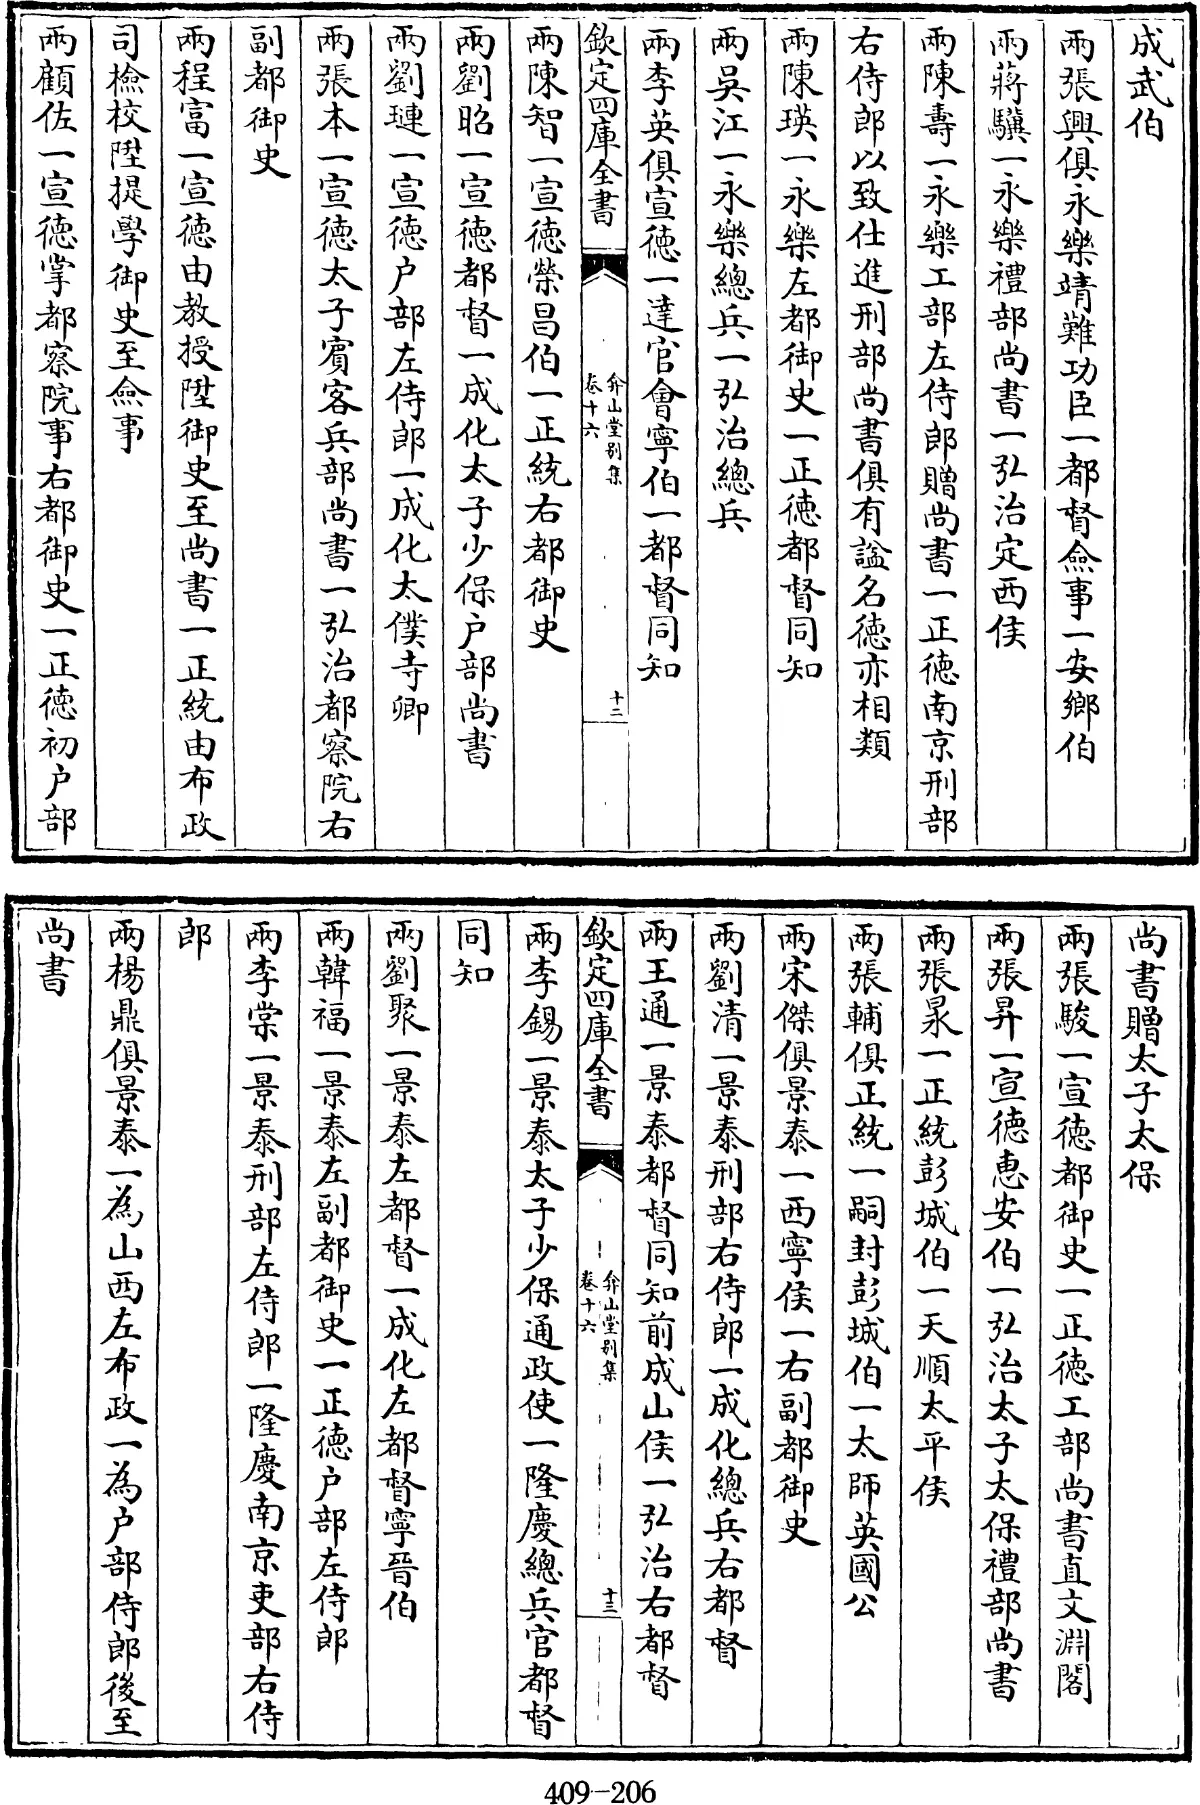 成武伯
兩張興俱永樂靖難功臣一都督僉事一安鄉伯
兩蔣驥一永樂禮部尚書一弘治定西侯
兩陳壽一永樂工部左侍郎贈尚書一正德南京刑部
右侍郎以致仕進刑部尚書俱有謚名德亦相類
兩陳瑛一永樂左都御史一正德都督同知
兩吳江一永樂總兵一弘治總兵
兩李英俱宣德一達官會寧伯一都督同知
欽定四庫全書
弇山堂别集
卷十六
十二
兩陳智一宣德榮昌伯一正統右都御史
兩劉昭一宣德都督一成化太子少保户部尚書
兩劉璉一宣德户部左侍郎一成化太僕寺卿
兩張本一宣德太子賓客兵部尚書一弘治都察院右
副都御史
兩程富一宣德由教授陞御史至尚書一正統由布政
司檢校陞提學御史至僉事
兩顧佐一宣德掌都察院事右都御史一正德初户部
尚書贈太子太保
兩張駿一宣德都御史一正德工部尚書直文淵閣
兩張昇一宣德惠安伯一弘治太子太保禮部尚書
兩張泉一正統彭城伯一天順太平侯
兩張輔俱正統一嗣封彭城伯一太師英國公
兩宋傑俱景泰一西寧侯一右副都御史
兩劉清一景泰刑部右侍郎一成化總兵右都督
兩王通一景泰都督同知前成山侯一弘治右都督
欽定四庫全書
弇山堂别集
卷十六
十三
兩李錫一景泰太子少保通政使一隆慶總兵官都督
同知
兩劉聚一景泰左都督一成化左都督寧晉伯
兩韓福一景泰左副都御史一正德户部左侍郎
兩李棠一景泰刑部左侍郎一隆慶南京吏部右侍
郎
兩楊鼎俱景泰一為山西左布政一為户部侍郎後至
尚書
409-206